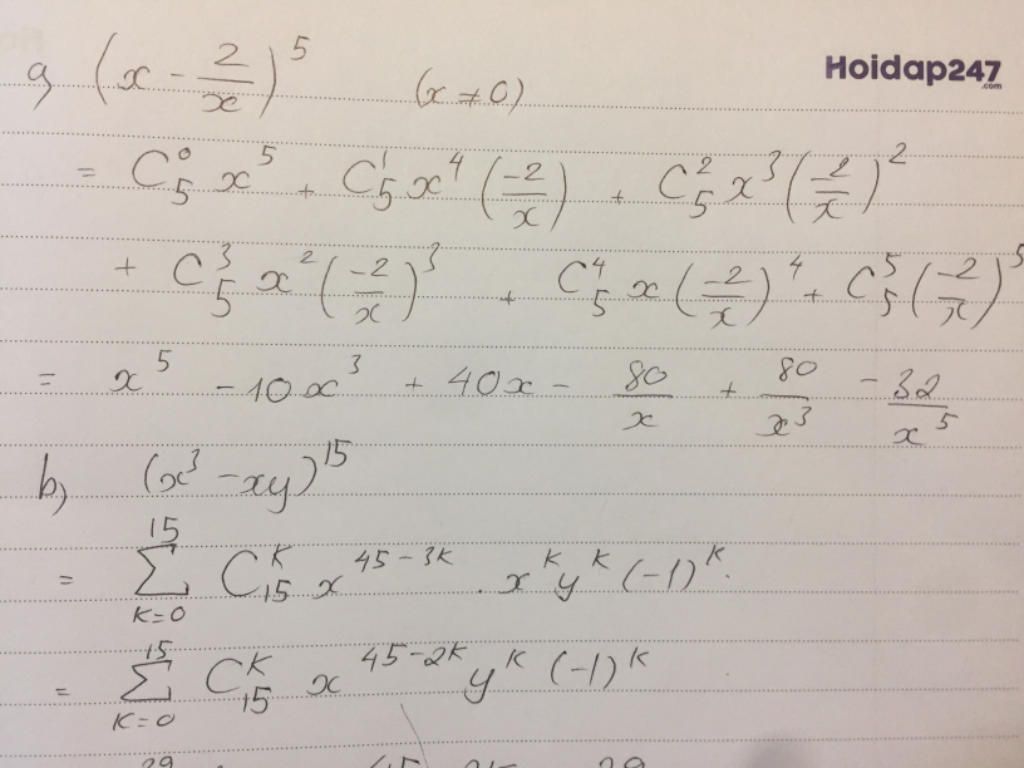 a) (x - 2/x)^5 (x ≠ 0)
Hoidap247
.com
= C_5^0 x^5 + C_5^1 x^4 (-2/x) + C_5^2 x^3 (-2/x)^2
+ C_5^3 x^2 (-2/x)^3 + C_5^4 x (-2/x)^4 + C_5^5 (-2/x)^5
= x^5 - 10x^3 + 40x - 80/x + 80/x^3 - 32/x^5
b) (x^3 - xy)^15
= Σ_{K=0}^{15} C_15^K x^{45-3K} . x^K y^K (-1)^K.
= Σ_{K=0}^{15} C_15^K x^{45-2K} y^K (-1)^K